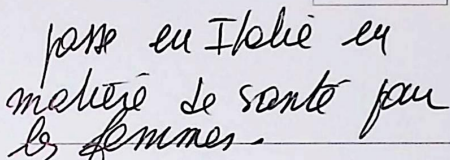 passe en Italie en
matière de santé pour
les femmes.